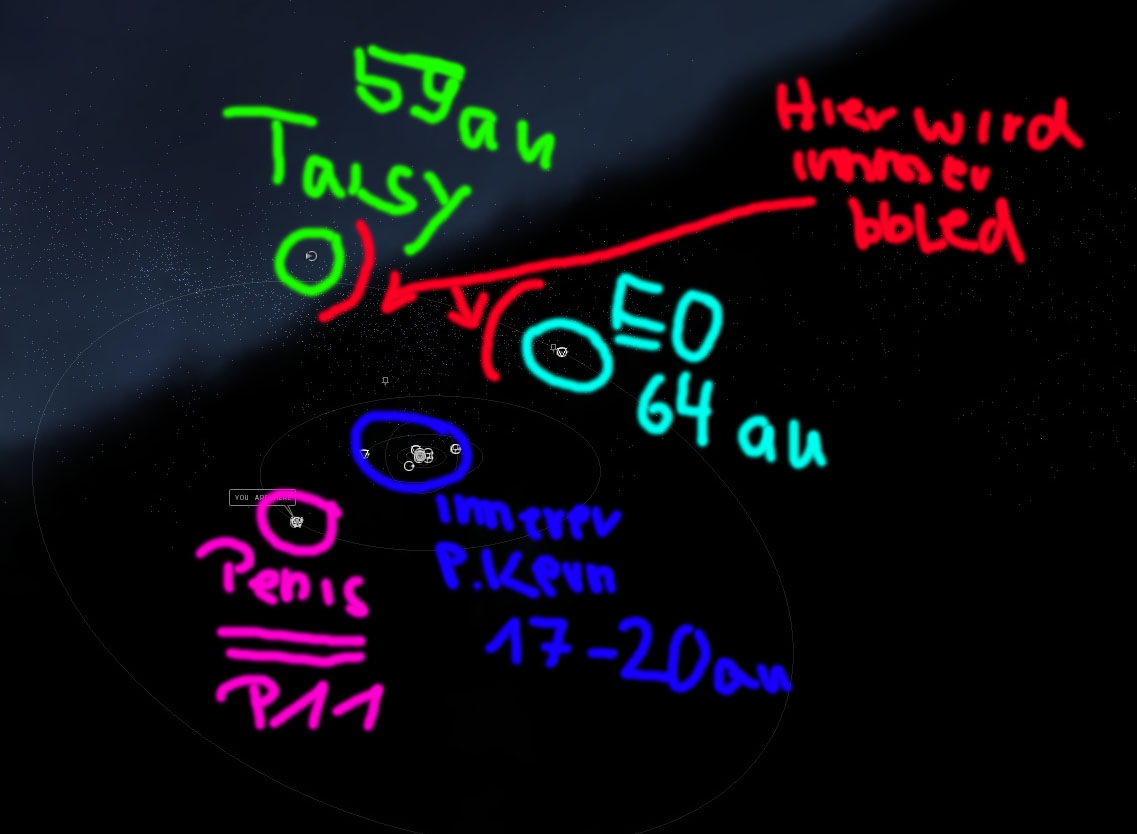 59 au
Taisy
Hier wird
immer
bbled
EO
64 au
YOU ARE HERE
innerer
P.Kern
17-20 au
Penis
P11